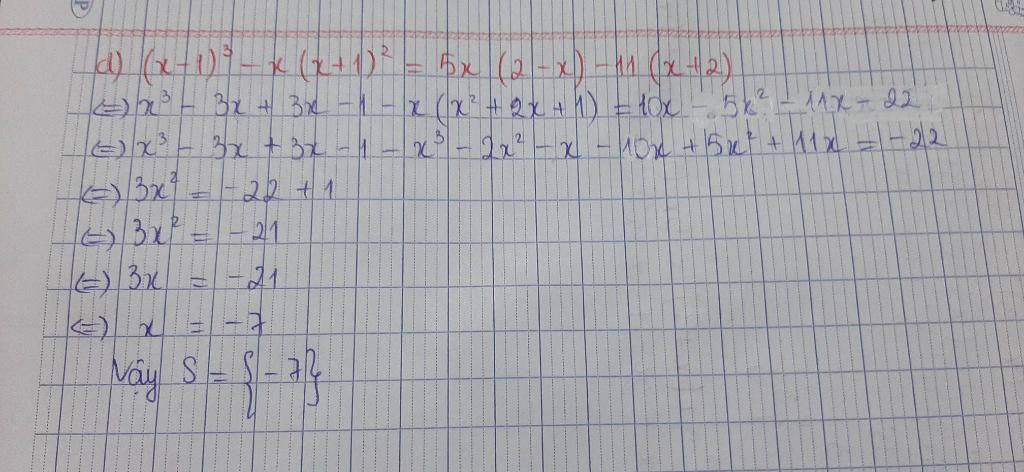 d) (x-1)³ - x (x+1)² = 5x (2-x) - 11 (x+2)
(=) x³ - 3x + 3x - 1 - x (x² + 2x + 1) = 10x - 5x² - 11x - 22
(=) x³ - 3x + 3x - 1 - x³ - 2x² - x - 10x + 5x² + 11x = -22
(=) 3x² = -22 + 1
(=) 3x² = -21
(=) 3x = -21
(=) x = -7
Vậy S = {-7}